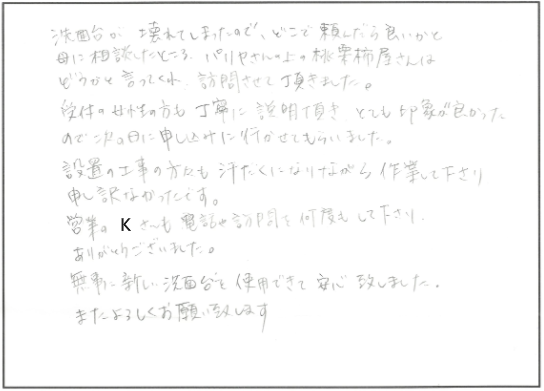 洗面台が壊れてしまったので、どこで頼んだら良いかと
母に相談したところ、パリヤさんの上の桃栗柿屋さんは
どうかと言ってくれ、訪問させて頂きました。
受付の女性の方も丁寧に説明頂きとても印象が良かった
ので次の日に申し込みに行かせてもらいました。
設置の工事の方々も汗だくになりながら作業して下さり
申し訳なかったです。
営業のKさんも電話や訪問を何度もして下さり、
ありがとうございました。
無事に新しい洗面台を使用できて安心致しました。
またよろしくお願い致します